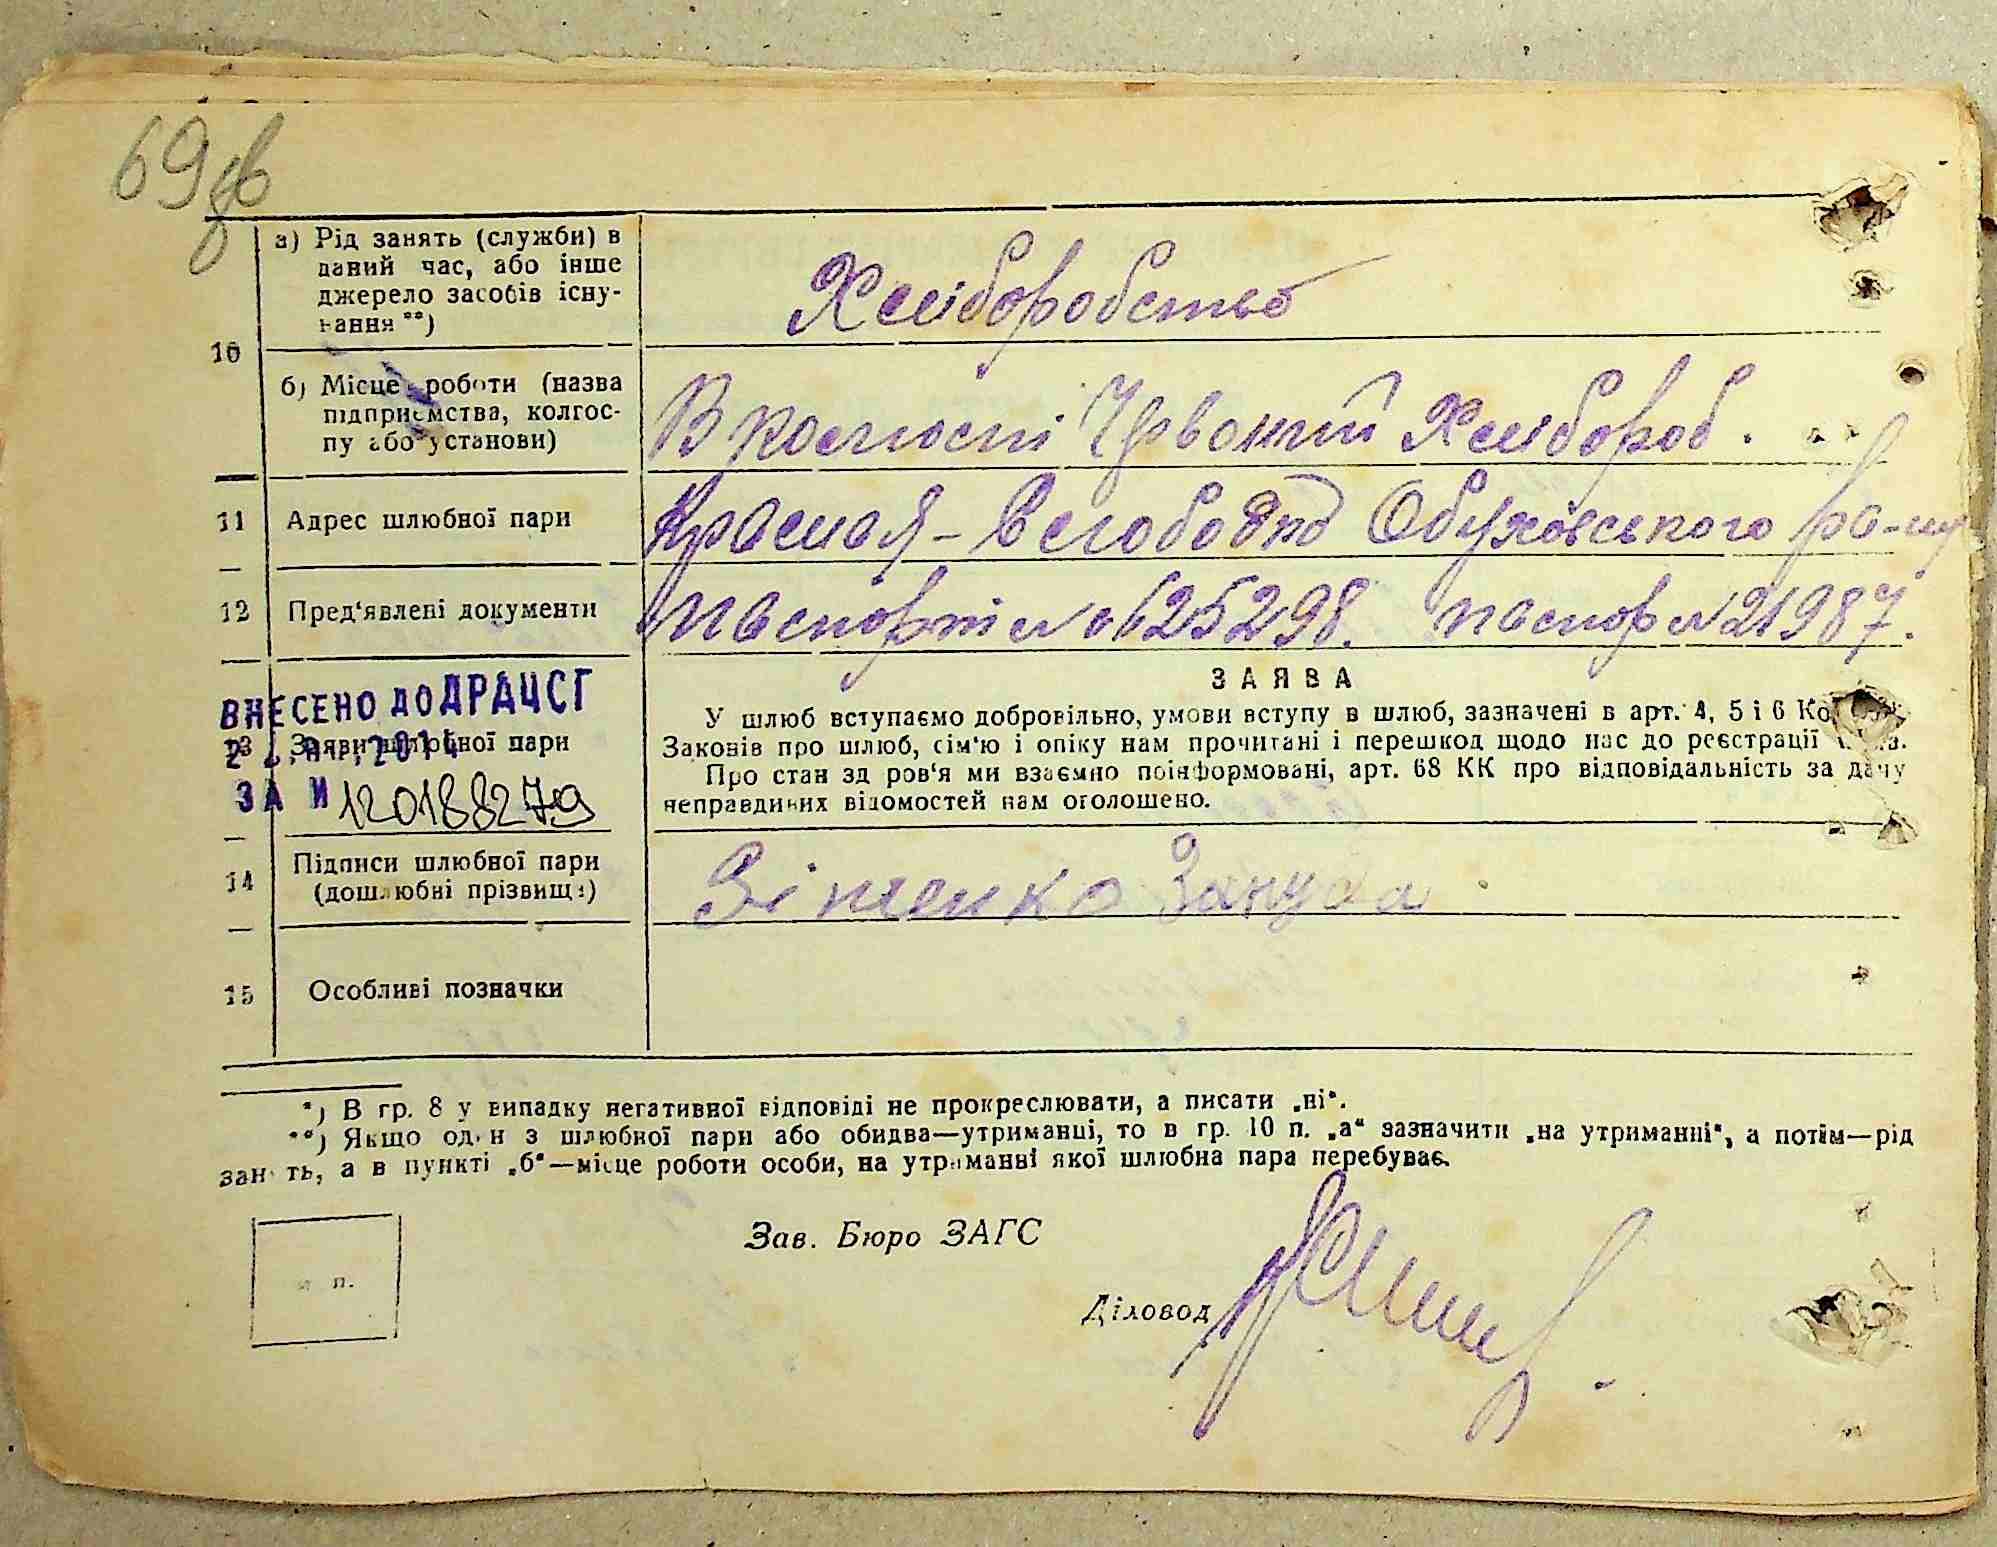 69
10
а) Рід занять (служби) в
даний час, або інше
джерело засобів існу-
вання **)
Хліборобство
б) Місце роботи (назва
підприємства, колгос-
пу або установи)
В колгоспі Червоний Хлібороб.
11
Адрес шлюбної пари
Красная-Слободка Обуховського ра-ну
12
Пред'явлені документи
паспорт № 625298. паспор № 21987.
ВНЕСЕНО ДО ДРАЦСГ
13
Заяви шлюбної пари
2014
ЗА №
120188279
ЗАЯВА
У шлюб вступаємо добровільно, умови вступу в шлюб, зазначені в арт. 4, 5 і 6 Ко
Законів про шлюб, сім'ю і опіку нам прочитані і перешкод щодо нас до реєстрації
Про стан здоров'я ми взаємно поінформовані, арт. 68 КК про відповідальність за дачу
неправдивих відомостей нам оголошено.
14
Підписи шлюбної пари
(дошлюбні прізвища)
Зіненко
15
Особливі позначки
*) В гр. 8 у випадку негативної відповіді не прокреслювати, а писати „ні“.
**) Якщо один з шлюбної пари або обидва—утриманці, то в гр. 10 п. „а“ зазначити „на утриманні“, а потім—рід
занять, а в пункті „б“—місце роботи особи, на утриманні якої шлюбна пара перебуває.
п.
Зав. Бюро ЗАГС
Діловод